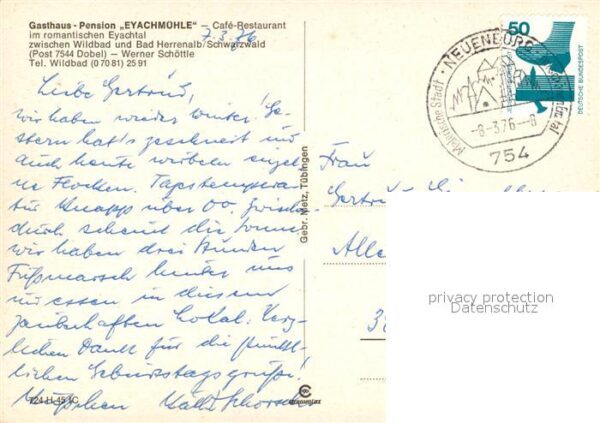 Gasthaus - Pension „EYACHMÜHLE" — Café-Restaurant
im romantischen Eyachtal
zwischen Wildbad und Bad Herrenalb/Schwarzwald
(Post 7544 Dobel) — Werner Schöttle
Tel. Wildbad (07081) 2591
7.3.76
Liebe Gertrud,
wir haben wieder Winter! Ge-
stern hat's geschneit und
auch heute wirbeln einzel-
ne Flocken. Tagestempera-
tur knapp über 0°. Zwisch-
durch scheint die Sonne
wir haben drei Stunden
Fußmarsch hinter uns
und essen in diesem
zauberhaften Lokal. Herz-
lichen Dank für die pünkt-
lichen Geburtstagsgrüße!
Küßchen
724 H 45 C
Gebr. Metz, Tübingen
50
DEUTSCHE BUNDESPOST
NEUENBÜRG
Malerische Stadt
-8-3.76-8
754
Frau
Alle
privacy protection
Datenschutz